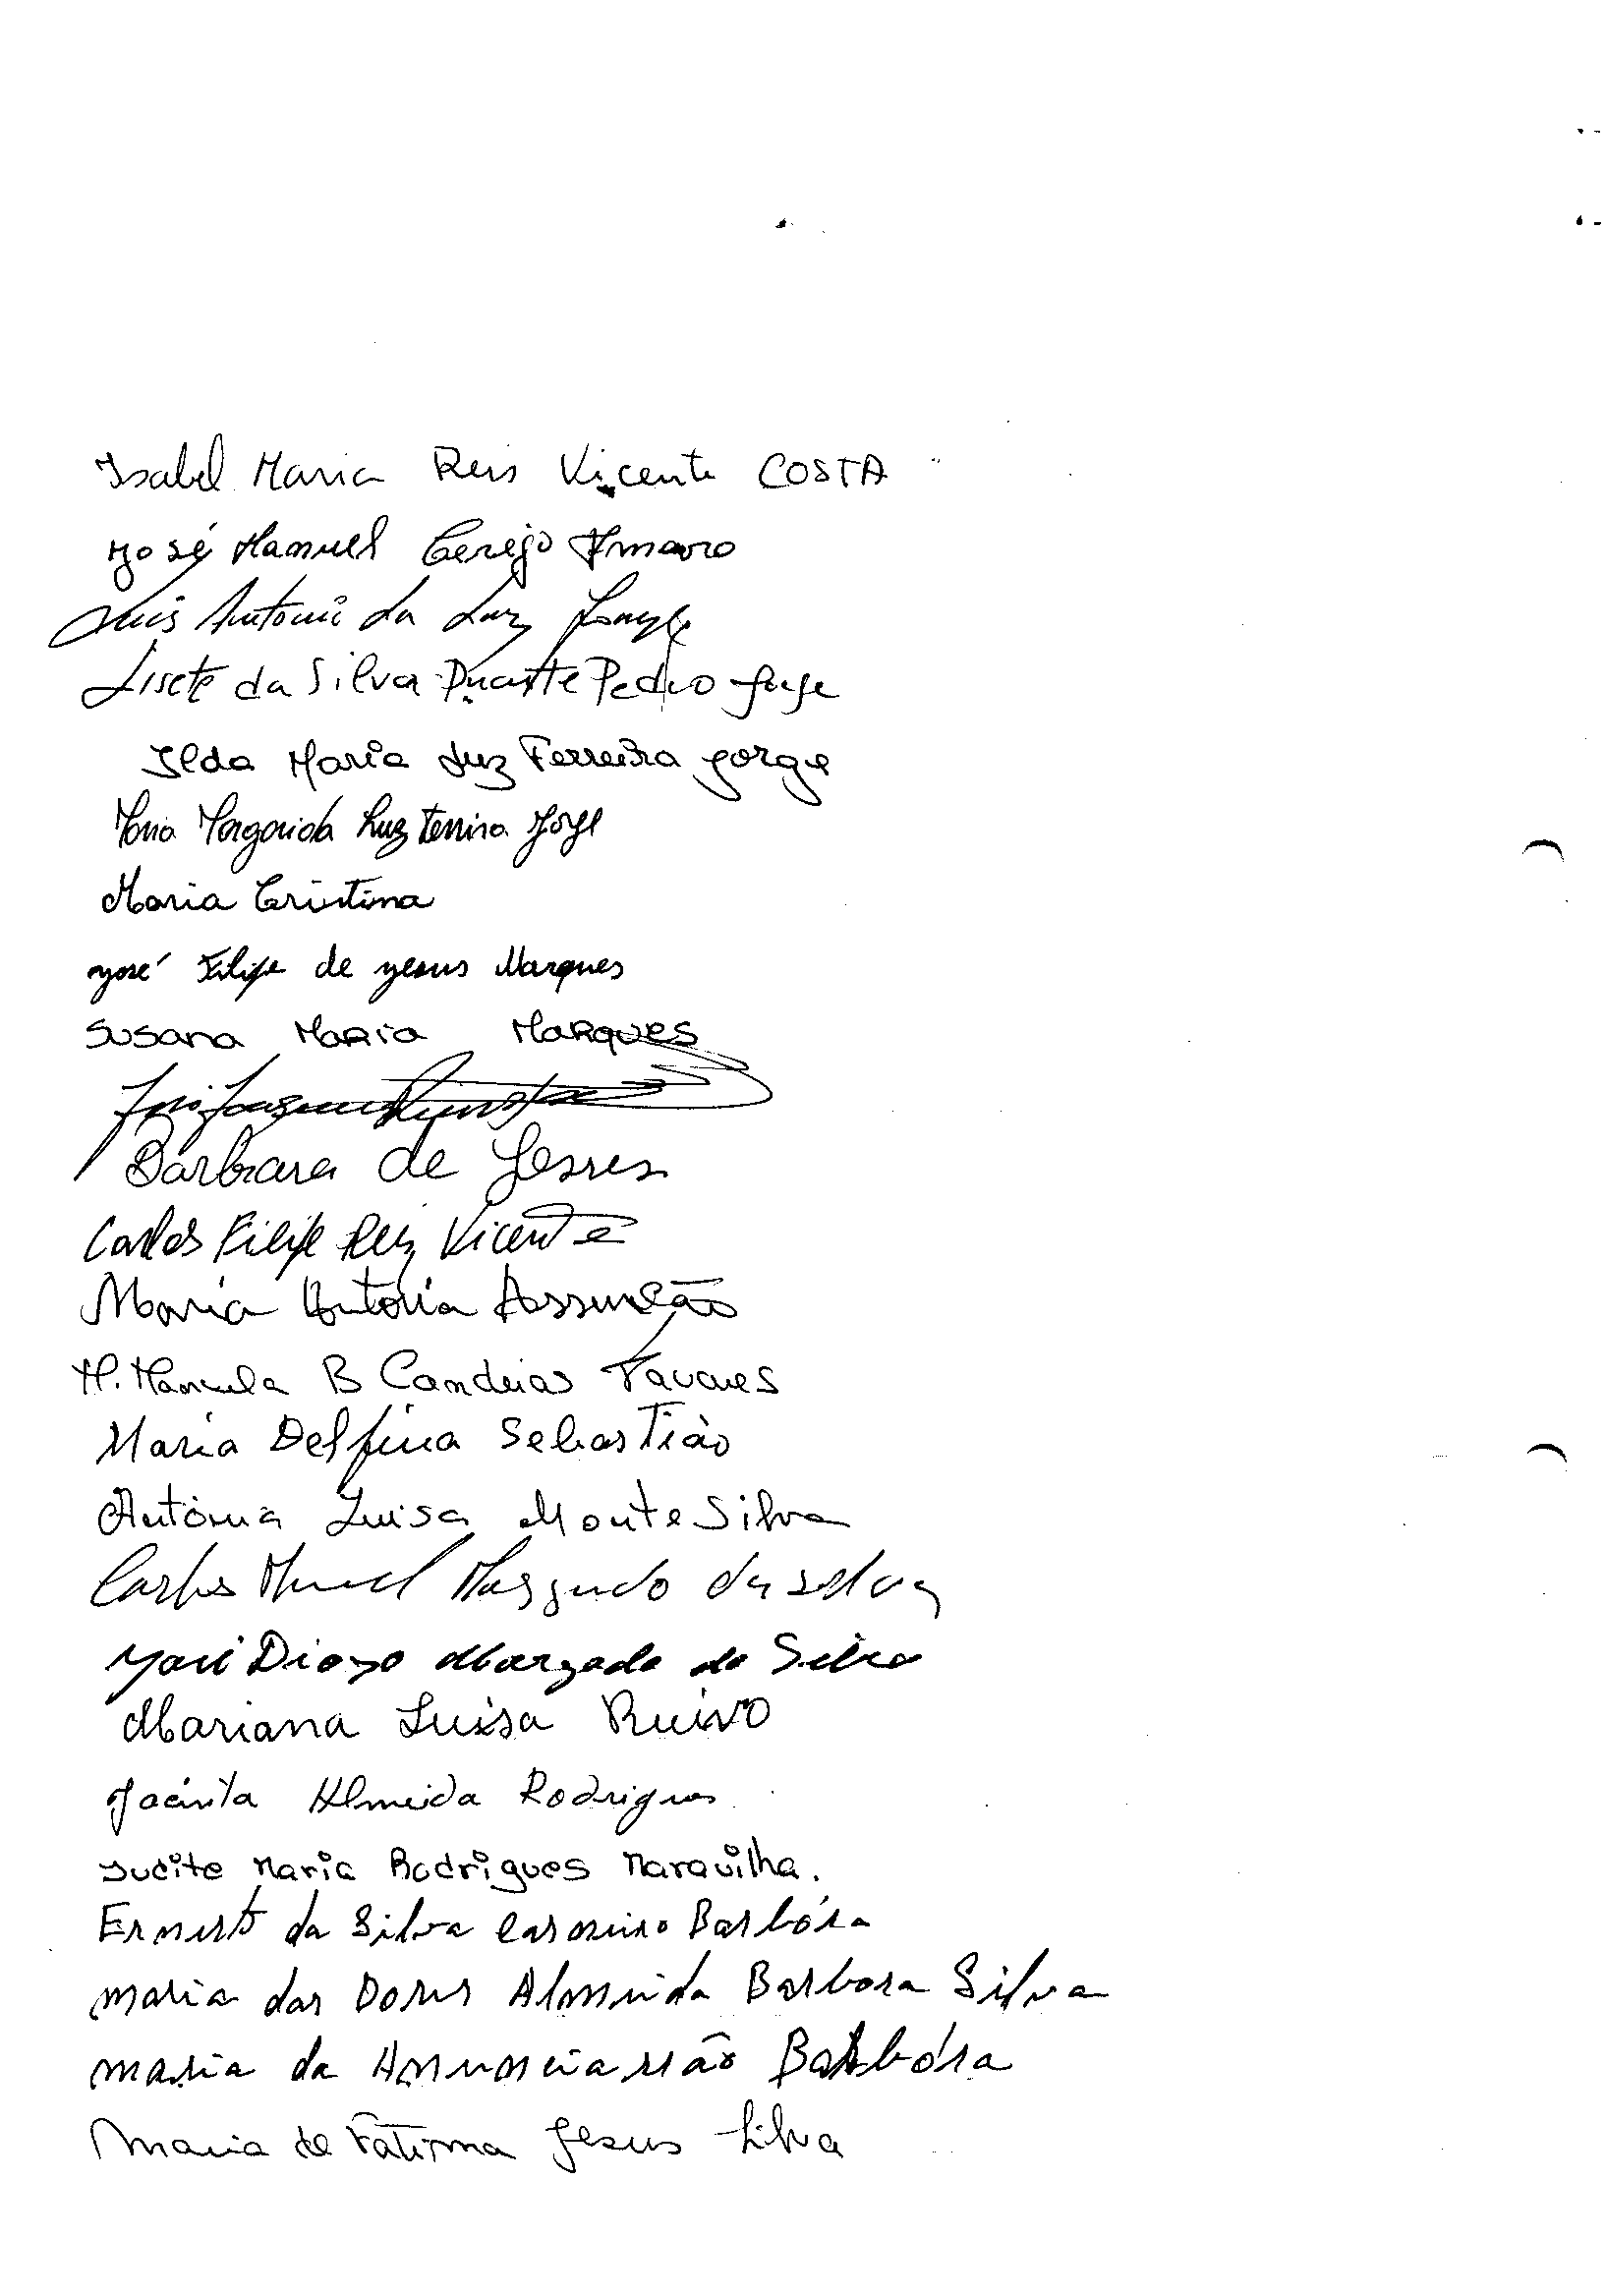 Isabel Maria Reis Vicente COSTA
José Manuel Cerejo Amaro
Luis António da Luz Jorge
Lisete da Silva Duarte Pedro Jorge
Ilda Maria Luz Ferreira Jorge
Maria Margarida Luz Ferreira Jorge
Maria Cristina
José Filipe de Jesus Marques
Susana Maria Marques
José Joaquim
Barbara de Jesus
Carlos Filipe Reiz Vicente
Maria Antónia Assunção
M. Manuela B Candeias Tavares
Maria Delfina Sebastião
Antónia Luisa Monte Silva
Carlos Manuel Morgado da Silva
José Diogo Morgado da Silva
Mariana Luísa Ruivo
Jacinta Almeida Rodrigues
Judite Maria Rodrigues Maravilha.
Ernesto da Silva Casmiro Barbósa
maria das Dores Almeida Barbosa Silva
maria da Anunciassão Barbósa
Maria de Fatima Jesus Silva